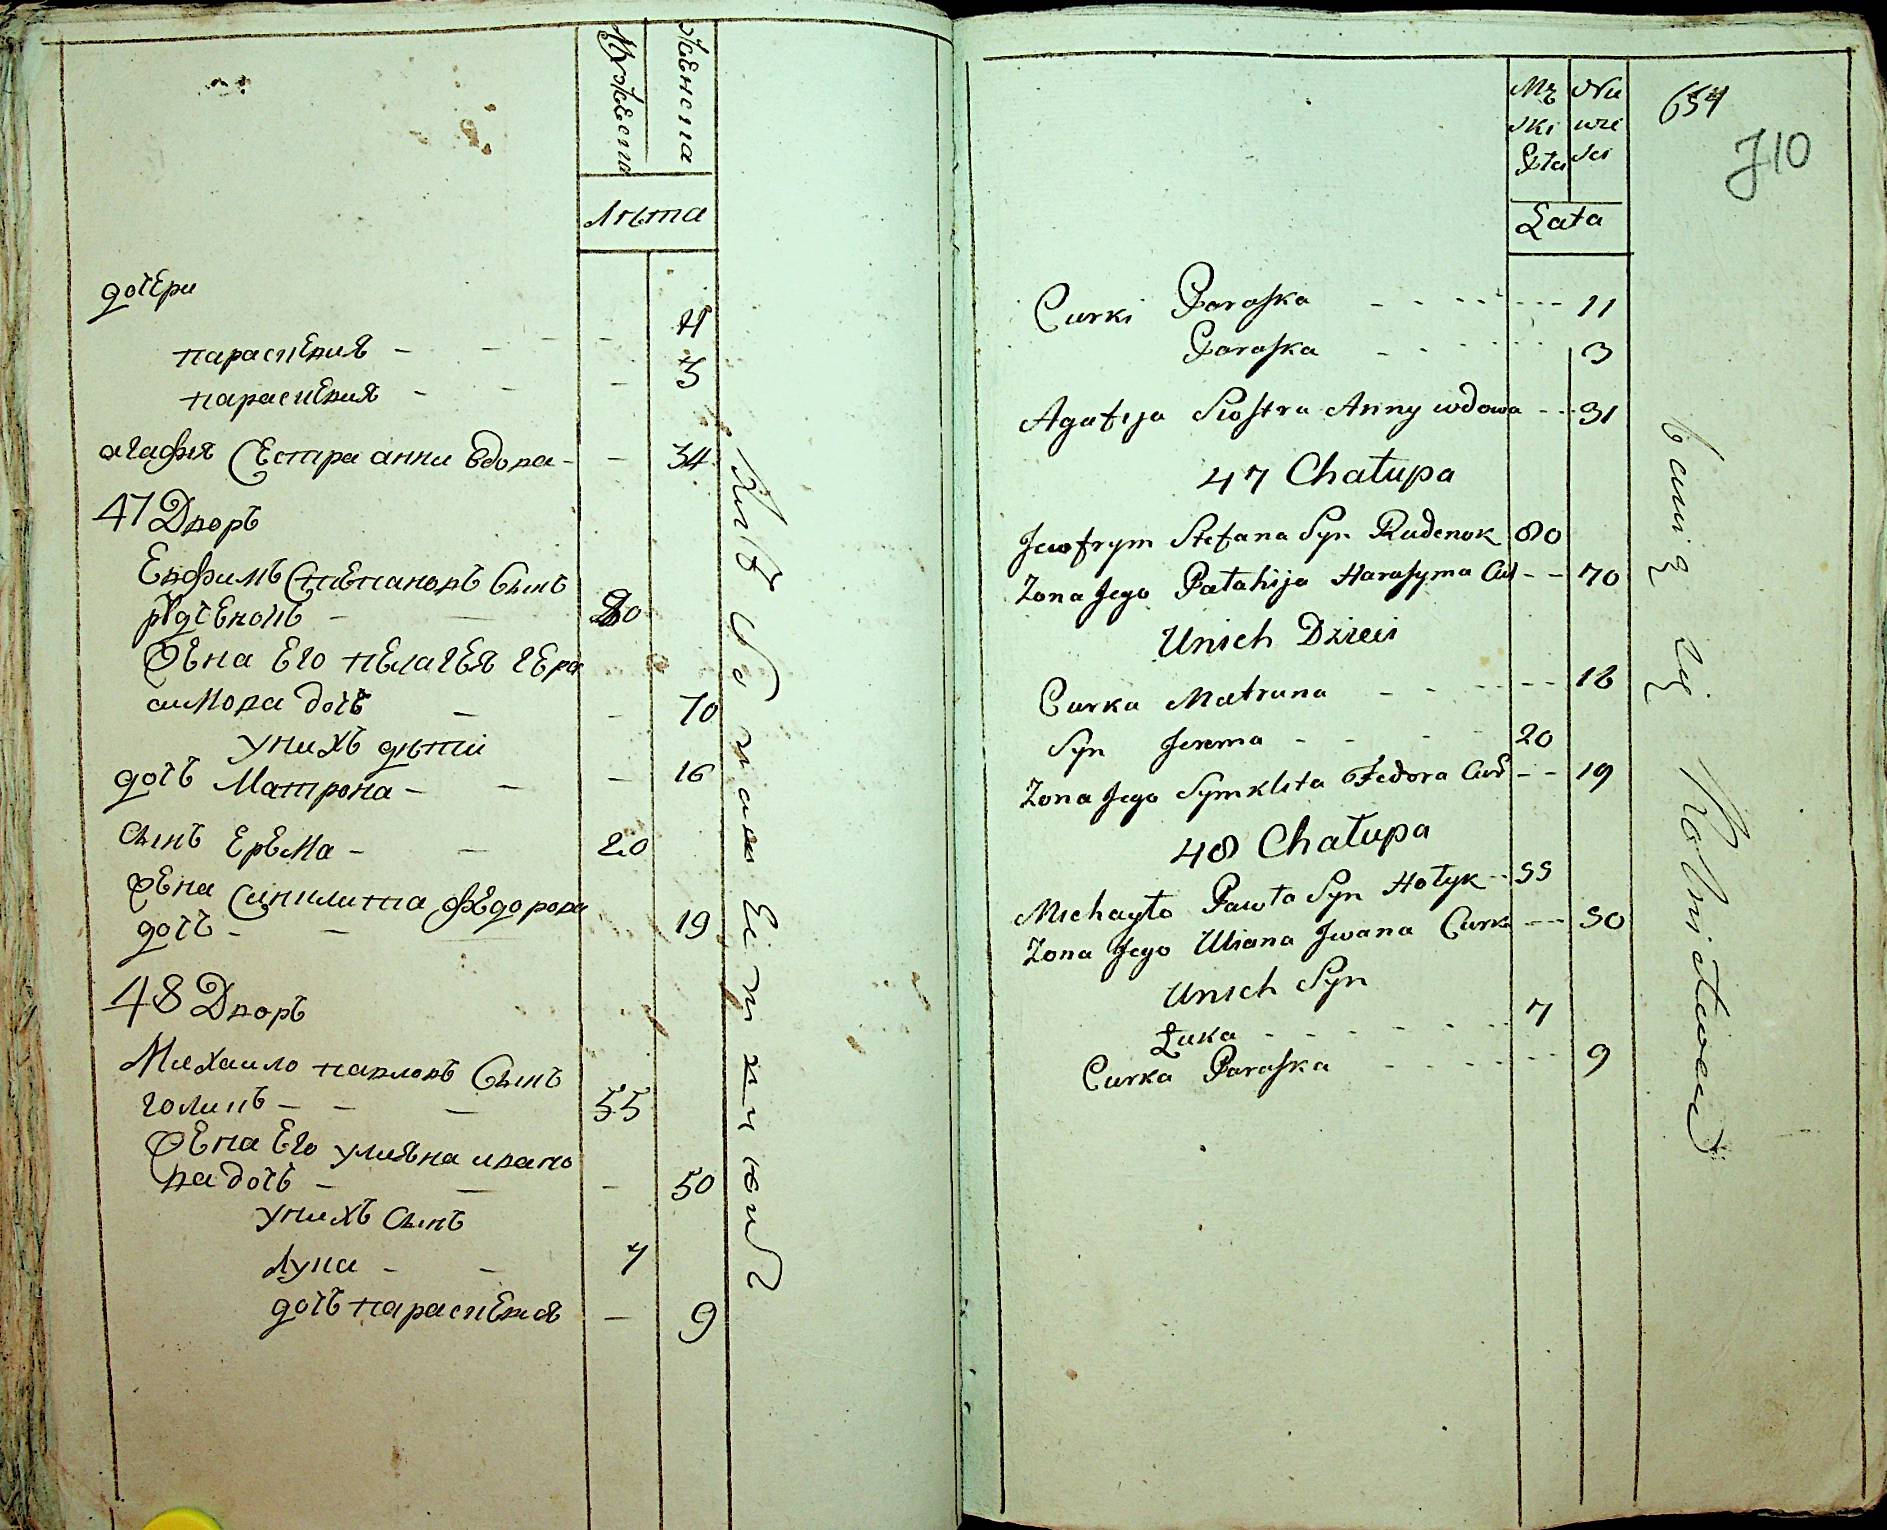 Мужеска
Женска
Лѣта
дочери
параскевия - - - - 11
параскевия - - - 3
агафия Сестра анни вдова - - 34
47 Дворъ
Евфимъ Степановъ Сынъ
рудченокъ - 80
Жена Его пелагея гера
симова дочъ - - 70
у нихъ дѣти
дочъ Матрона - - - 16
Сынъ Ерема - - 20
Жена Синклита федорова
дочъ - - 19
48 Дворъ
Михаило павловъ Сынъ
голикъ - - - 55
Жена Его улияна ивано
ва дочъ - - - 50
у нихъ Сынъ
Лука - - 7
дочъ параскевия - 9
Mę
ski
Płci
Nie
wie
sci
Łata
654
710
Curki Paraska - - - - - - - 11
Paraska - - - - - 3
Agafija Siostra Anny wdowa - - - 31
47 Chałupa
Jewfrym Stefana Syn Rudenok 80
Zona Jego Pałahija Harasyma Cur - - 70
Unich Dzieci
Curka Matruna - - - - - - 16
Syn Jerema - - - - 20
Zona Jego Symklita Fedora Cur - - 19
48 Chałupa
Michayło Pawła Syn Hołyk - - 55
Zona Jego Uliana Jwana Curka - - - 50
Unich Syn
Łuka - - - - - - - 7
Curka Paraska - - - - - - - 9